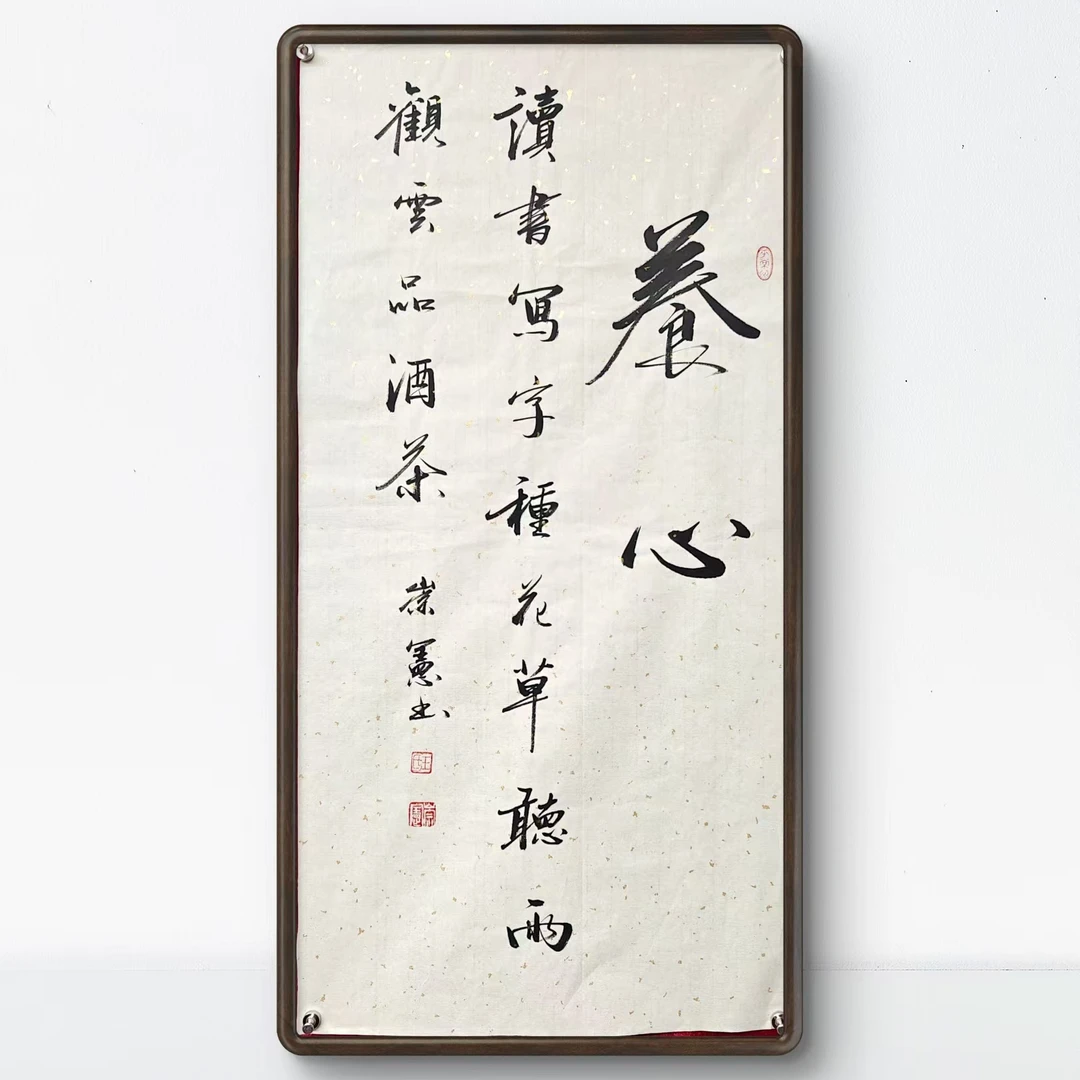 養心
讀書寫字種花草聽雨
觀雲品酒茶
崇憲书